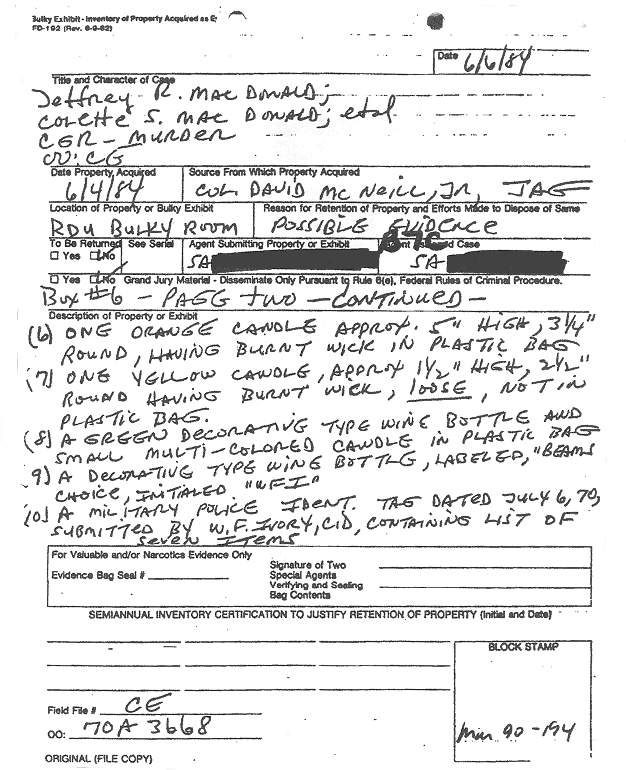 Bulky Exhibit - Inventory of Property Acquired as E
FD-192 (Rev. 6-9-82)
Date 6/6/84
Title and Character of Case
Jeffrey R. MAC DONALD;
COLETTE S. MAC DONALD; etal
CGR - MURDER
OO: CG
Date Property Acquired Source From Which Property Acquired
6/4/84 COL. DAVID MC NEILL, JR, JAG
Location of Property or Bulky Exhibit Reason for Retention of Property and Efforts Made to Dispose of Same
RDU BULKY ROOM POSSIBLE EVIDENCE
To Be Returned See Serial Agent Submitting Property or Exhibit Case
Yes No SA SA
Yes No Grand Jury Material - Disseminate Only Pursuant to Rule 6(e), Federal Rules of Criminal Procedure.
BOX #6 - PAGE TWO - CONTINUED -
Description of Property or Exhibit
(6) ONE ORANGE CANDLE APPROX. 5" HIGH, 3 1/4"
ROUND, HAVING BURNT WICK IN PLASTIC BAG
(7) ONE YELLOW CANDLE, APPROX 1 1/2" HIGH, 2 1/2"
ROUND HAVING BURNT WICK, LOOSE, NOT IN
PLASTIC BAG.
(8) A GREEN DECORATIVE TYPE WINE BOTTLE AND
SMALL MULTI-COLORED CANDLE IN PLASTIC BAG
9) A DECORATIVE TYPE WINE BOTTLE, LABELED, "BEAMS
CHOICE, INITIALED "WFI"
10) A MILITARY POLICE IDENT. TAG DATED JULY 6, 70,
SUBMITTED BY W.F. IVORY, CID, CONTAINING LIST OF
SEVEN ITEMS
For Valuable and/or Narcotics Evidence Only
Evidence Bag Seal #
Signature of Two
Special Agents
Verifying and Sealing
Bag Contents
SEMIANNUAL INVENTORY CERTIFICATION TO JUSTIFY RETENTION OF PROPERTY (Initial and Date)
BLOCK STAMP
Field File # CE
OO: 70A 3668
90-194
ORIGINAL (FILE COPY)